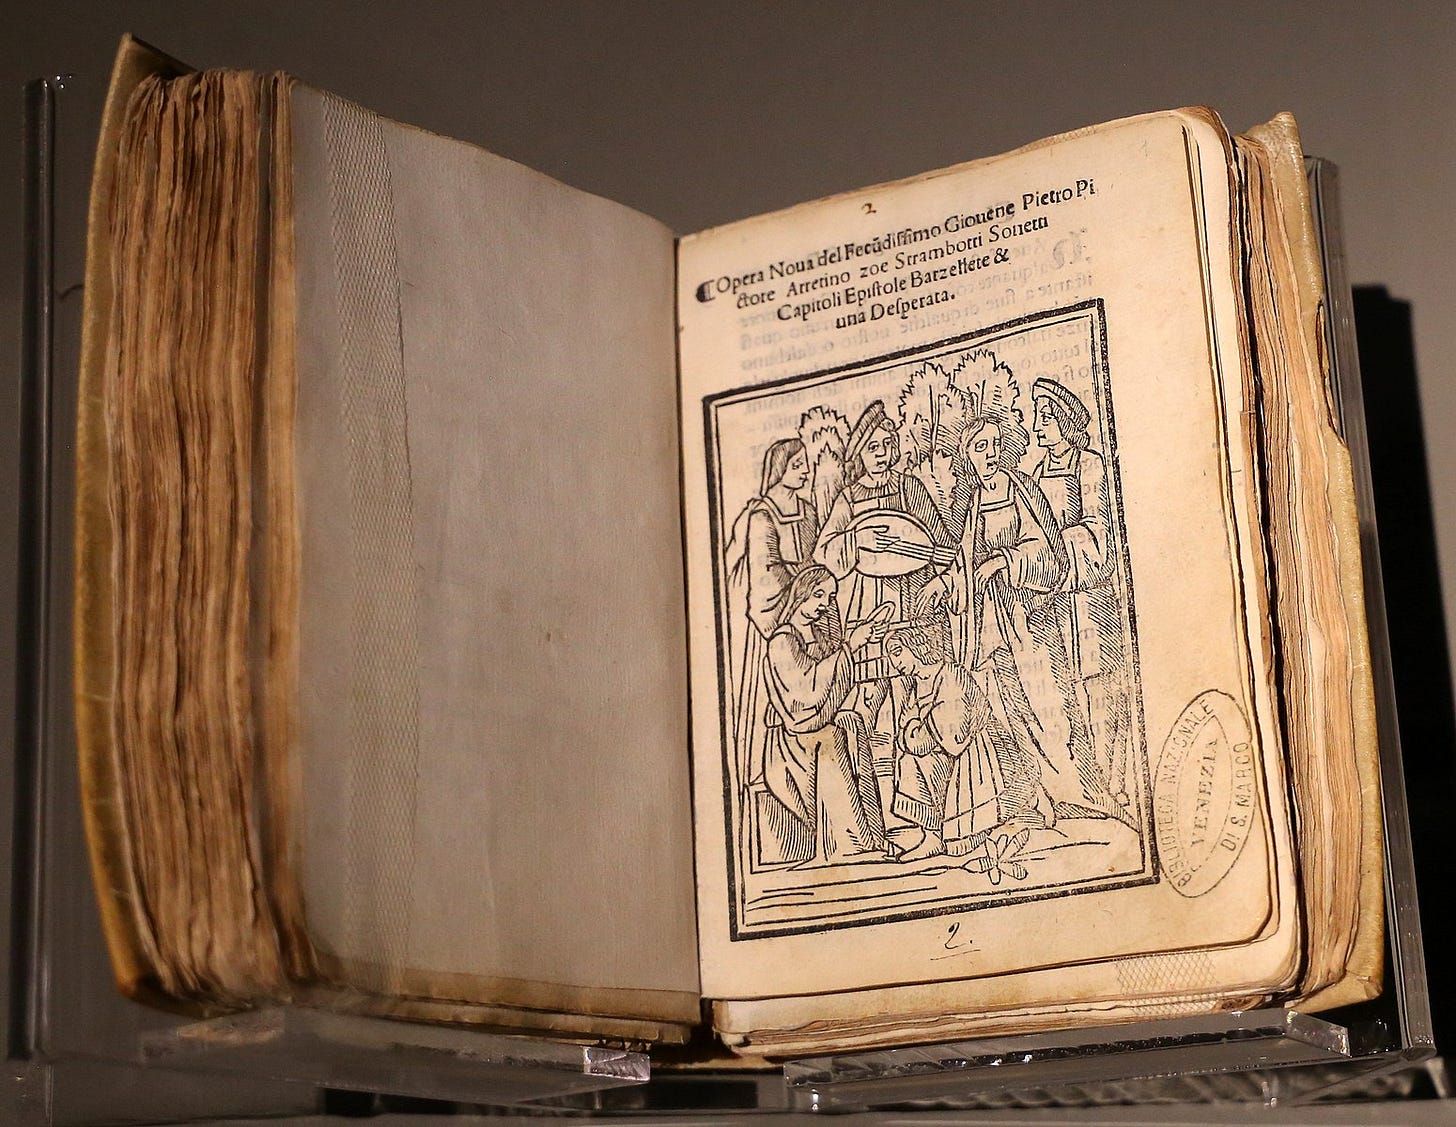 2
⸿ Opera Noua del Fecũdissimo Giouene Pietro Pi
ctore Arretino zoe Strambotti Sonetti
Capitoli Epistole Barzellete &
una Desperata.
BIBLIOTECA NAZIONALE
DI S. MARCO
VENEZIA
2.